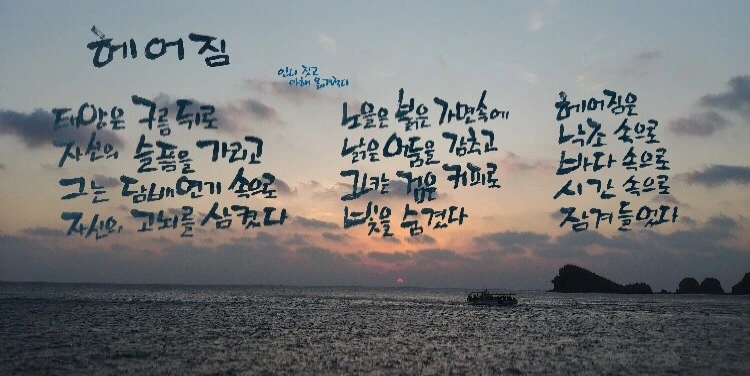 헤어짐
짓고
아해 옮겨적다
태양은 구름 뒤로
자신의 슬픔을 가리고
그는 담배연기 속으로
자신의 고뇌를 삼켰다
노을은 붉은 가면속에
낡은 어둠을 감추고
그녀는 검은 커피로
빛을 숨겼다
헤어짐은
낙조 속으로
바다 속으로
시간 속으로
잠겨들었다